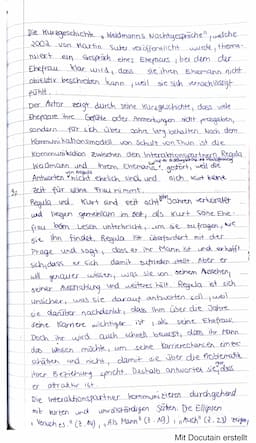 Die Kurzgeschichte „Weidmanns Nachtgespräche", welche
2002 von Martin Suter veröffentlicht wurde, thema-
tisiert ein Gespräch eines Ehepaares, bei dem der
Ehefrau klar wird, dass sie ihren Ehemann nicht
objektiv beschreiben kann, weil sie sich vernachlässigt
fühlt.
Der Autor zeigt durch seine Kurzgeschichte, dass viele
Ehepaare ihre Gefühle oder Anmerkungen nicht preisgeben,
sondern für sich über Jahre lang behalten. Nach dem
Kommunikationsmodell von Schulz von Thun ist die
Kommunikation zwischen den Interaktionspartnern Regula
Weidmann und ihrem Ehemann gestört, weil die
Antworten von Regula nicht ehrlich sind und sich Kurt keine
Zeit für seine Frau nimmt.
Regula und Kurt sind seit acht Jahren verheiratet
und liegen gemeinsam im Bett, als Kurt seine Ehe-
frau beim Lesen unterbricht, um sie zu fragen, wie
sie ihn findet. Regula ist überfordert mit der
Frage und sagt, dass er ihr Mann ist und erhofft
sich, dass er sich damit zufrieden stellt. Aber er
will genauer wissen, was sie von seinem Aussehen,
seiner Ausstrahlung und weiteres hält. Regula ist sich
unsicher, was sie darauf antworten soll, weil
sie darüber nachdenkt, dass ihm über die Jahre
seine Karriere wichtiger ist, als seine Ehefrau.
Doch ihr wird auch schnell bewusst, dass ihr Mann
das wissen möchte, um seine Karrierechancen einzu-
schätzen und nicht, damit sie über die Problematik
ihrer Beziehung spricht. Deshalb antwortet sie, dass
er attraktiv ist.
Die Interaktionspartner kommunizieren durchgehend
mit kurzen und unvollständigen Sätzen. Die Ellipsen
"(Z. 14), „Als Mann" (Z. 19), „Auch" (Z. 23)
Mit Docutain erstellt